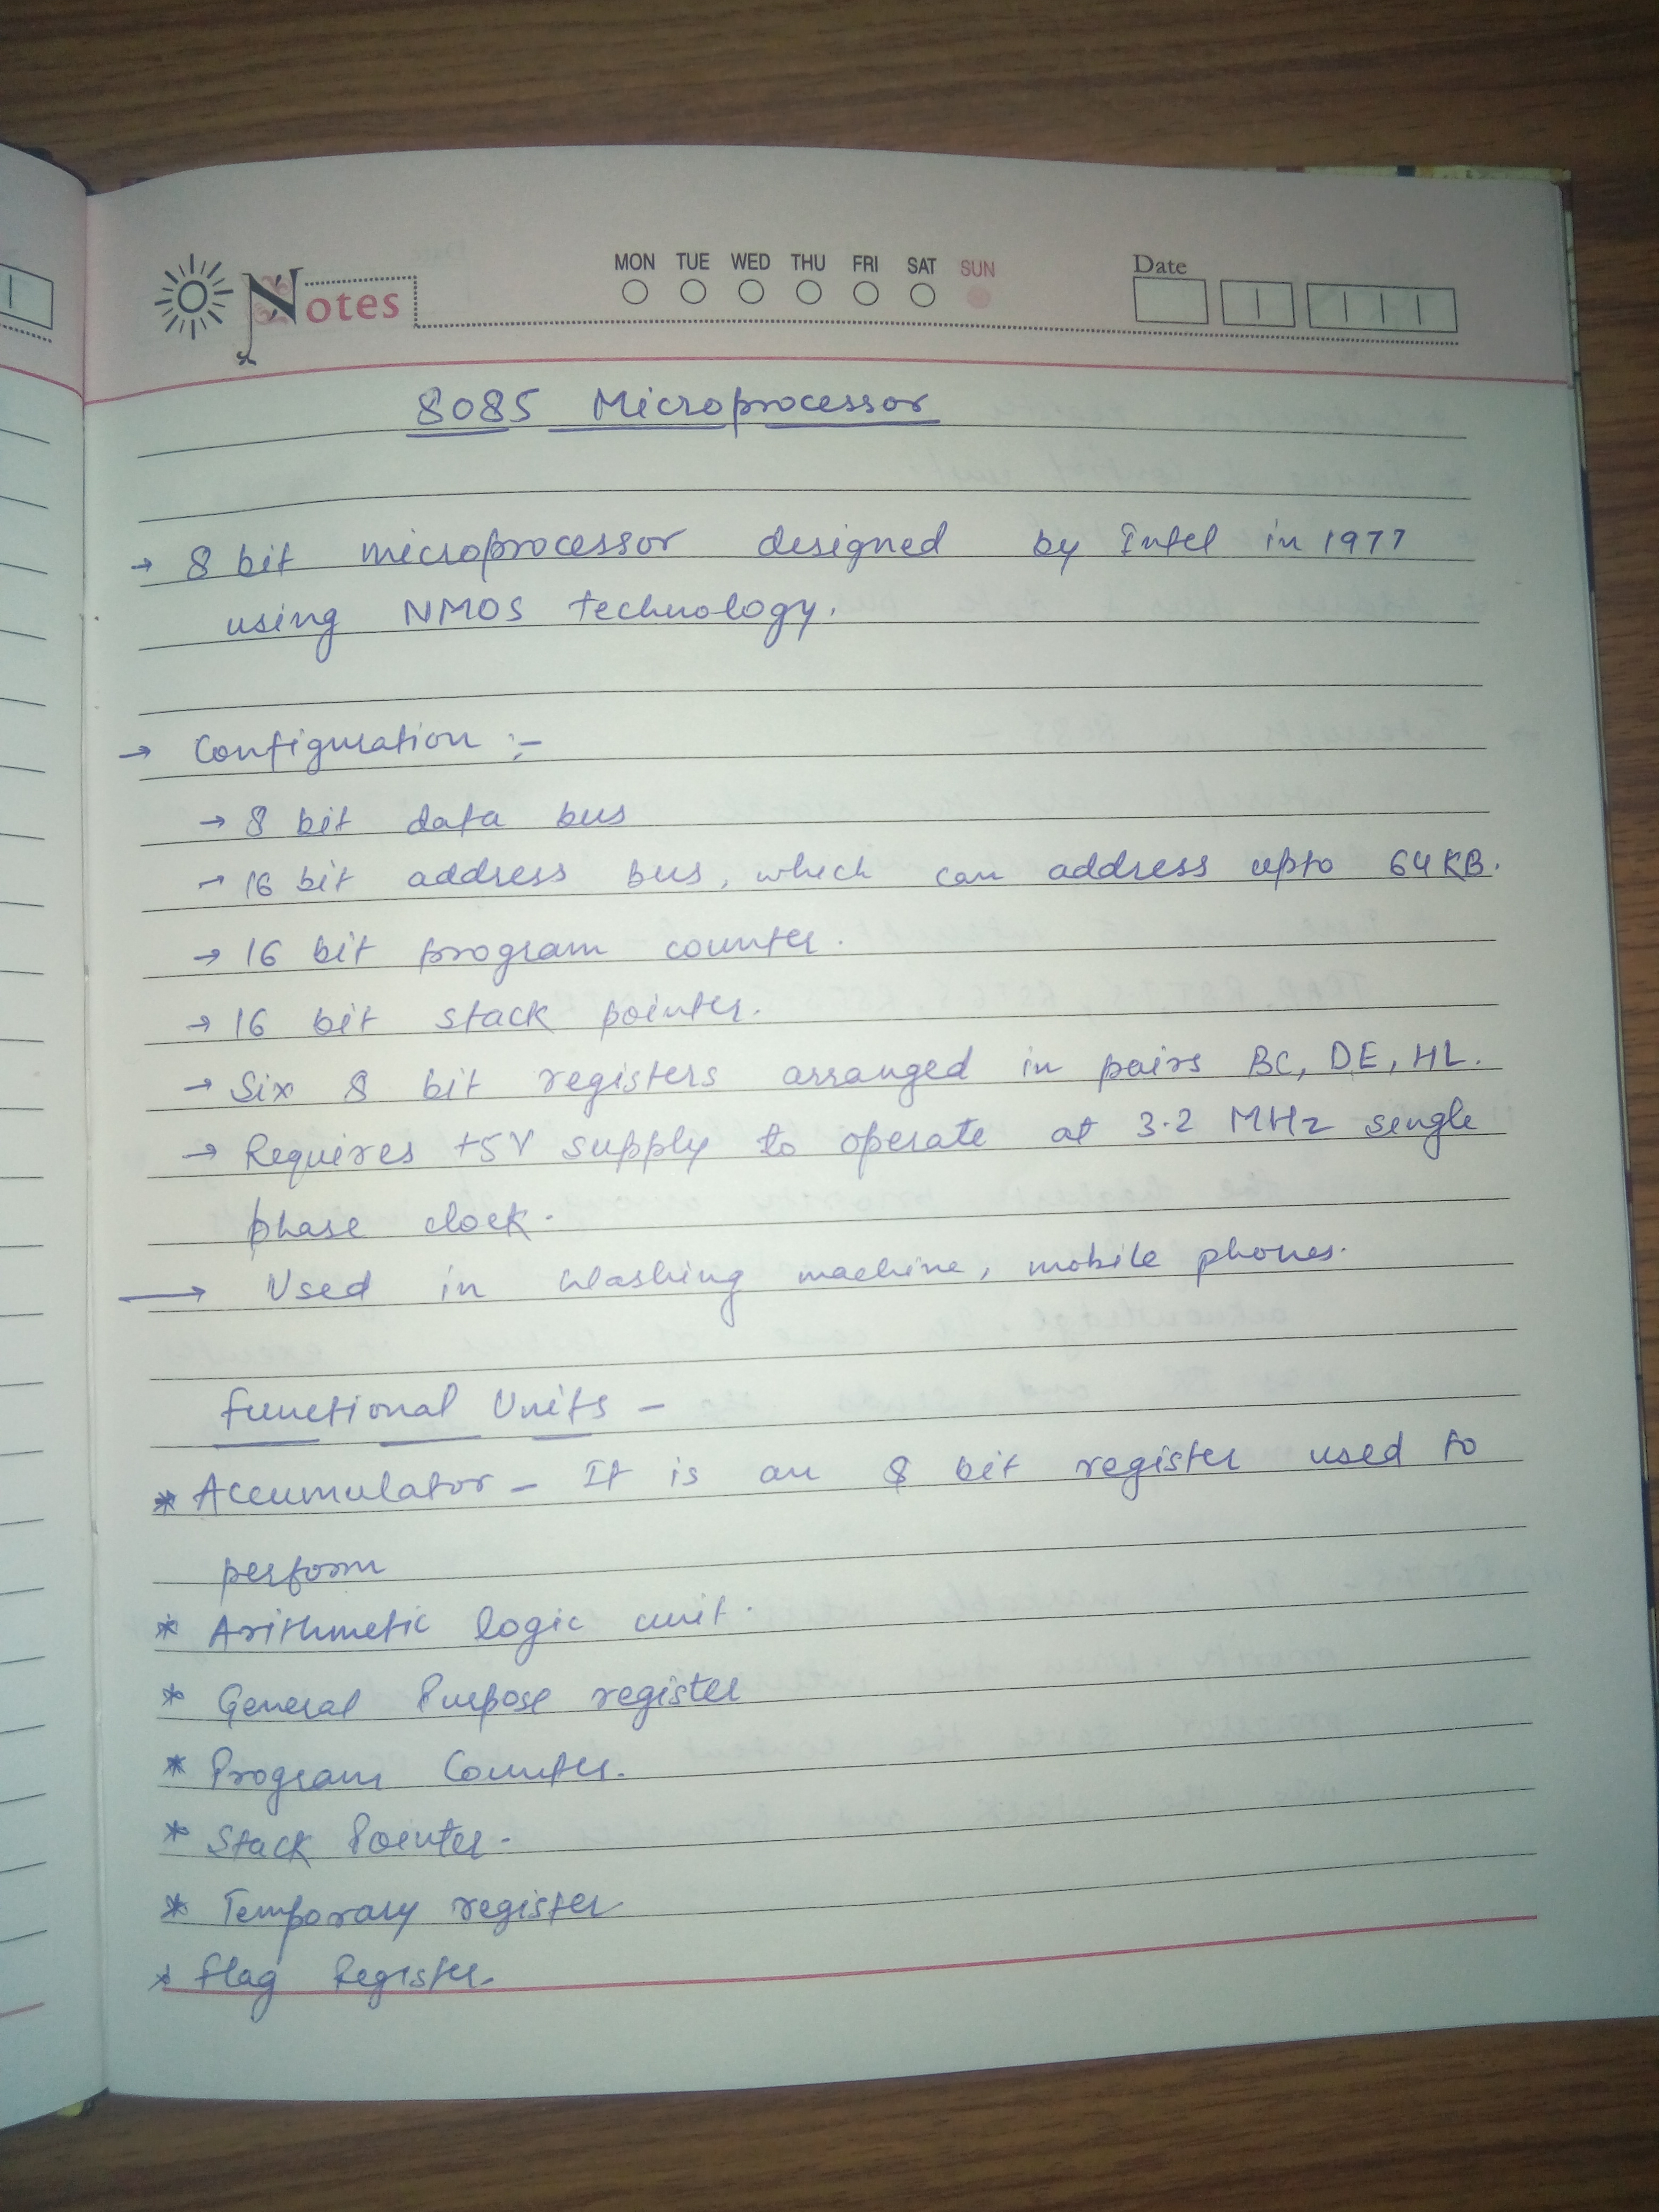 Notes
MON TUE WED THU FRI SAT SUN
Date
8085 Microprocessor
→ 8 bit microprocessor designed by Intel in 1977
using NMOS technology.
→ Configuration :-
→ 8 bit data bus
→ 16 bit address bus, which can address upto 64KB.
→ 16 bit program counter.
→ 16 bit stack pointer.
→ Six 8 bit registers arranged in pairs BC, DE, HL.
→ Requires +5V supply to operate at 3.2 MHz single
phase clock.
→ Used in washing machine, mobile phones.
Functional Units -
* Accumulator - It is an 8 bit register used to
perform
* Arithmetic logic unit.
* General Purpose register
* Program Counter.
* Stack Pointer.
* Temporary register
* Flag Register.